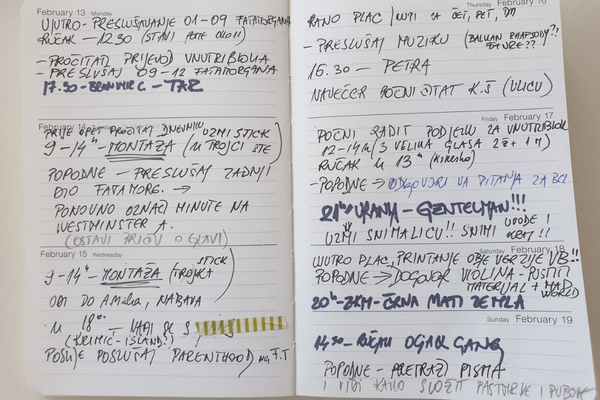 February 13 Monday
UJUTRO - PRESLUŠAVANJE 01-09 FATAMORGANA
RUČAK - 12.30
- PROČITAT PRIJEVOD UNUTRIBLOKA
- PRESLUŠAJ 09-12 FATAMORGANA
17.30 - BRANIMIR C - TAZ
February 14
PRIJE OPET PROČITAT DNEVNIK UZMI STICK
9-14h - MONTAŽA (U TROJCI STE)
POPODNE - PRESLUŠAJ ZADNJI
DIO FATAMORG. →
PONOVNO OZNAČI MINUTE NA
WESTMINSTER A.
(OSTAVI PRIČU O GLAVI)
February 15 Wednesday
STICK
9-14h - MONTAŽA (TROJKA)
OTIĆ DO AMEHA, NABAVA
U 18°° -
(KLIMIĆ - ISLAND?)
POSLIJE POSLUŠAJ PARENTHOOD F.T
Thursday February 16
RANO PLAC / KUPI ZA ČET, PET,
- PRESLUŠAJ MUZIKU (BALKAN RHAPSODY?!
16.30 - PETRA
NAVEČER POČNI ČITAT K.Š (ULICU)
Friday February 17
POČNI RADIT PODJELU ZA UNUTRIBLOK
12-14h / 3 VELIKA GLASA 2Ž + 1M)
RUČAK U 13h
- POPODNE → ODGOVORI NA PITANJA ZA BCL
21h URANIA - GENTLEMAN!!!
UZMI SNIMALICU!! SNIMI UVODE I
Saturday February 18
UJUTRO PLAC, PRINTANJE OBJE VERZIJE UB!!
POPODNE → DOGOVOR WOLINA - PUSTIT
MATERIJAL + MAD WORLD
20h - ZKM - ČRNA MATI ZEMLA
Sunday February 19
14,30 - RUČAK OGJAK GANG
POPODNE - PRETRAŽI PISMA
I VIDI KAKO SLOŽIT PASTIRICE I